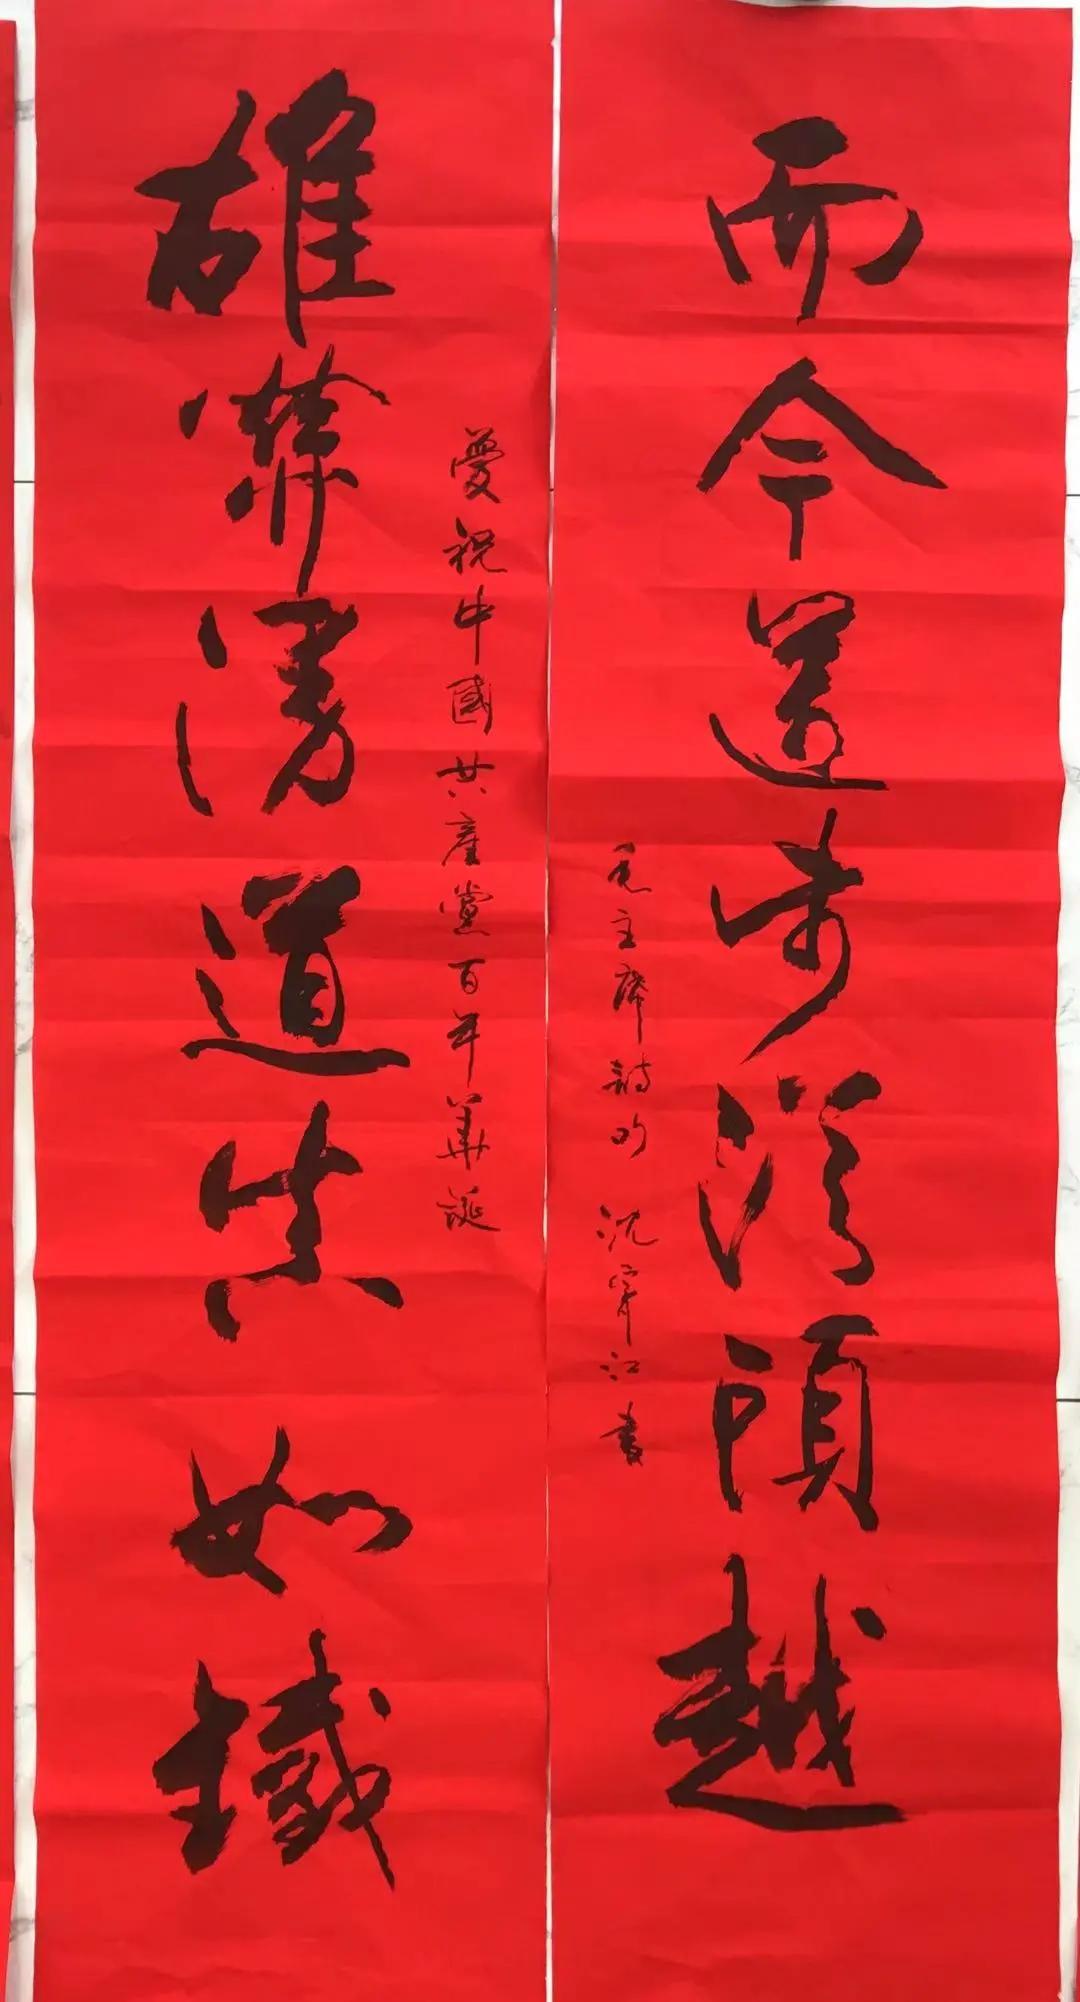 雄關漫道真如鐵
慶祝中國共產黨百年華誕
而今邁步從頭越
毛主席詩句 沈寧江書